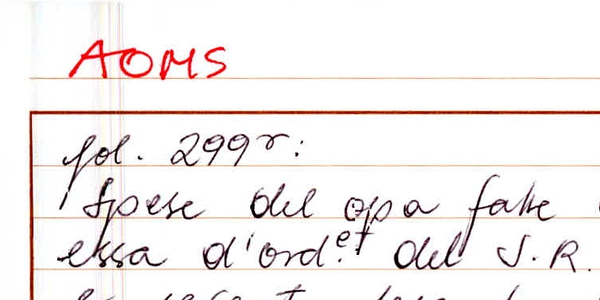 AOMS
fol. 299r:
Spese del opa fatte
essa d'ord.et del S.R.